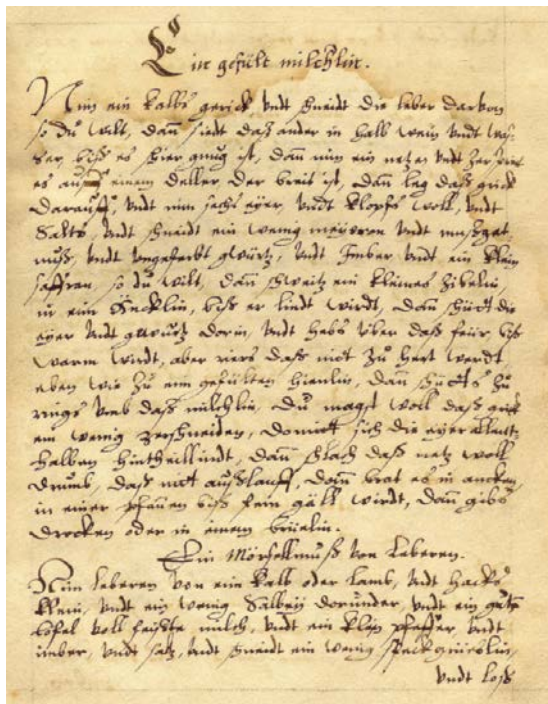 Ein gefült milchlin.
Nim ein kalbs gerick vndt schneidt die leber darvon
so du wilt, dan̄ siedt daß ander in halb wein vndt was-
ser, biß es schier gnug ist, dan̄ nim ein netzen vndt zerspreit
es auff einem deller, der breit ist, dan̄ leg daß grick
darauff, vndt nim sechs eyer, vndt klopfs woll, vndt
saltz, vndt schneidt ein wenig meyeron vndt muskat
nuß, vndt vngeferbt gwürtz, vndt Imber vndt ein klein
saffran so du wilt, dan̄ schweitz ein kleines zibelin,
in ein biß er lindt wirdt, dan̄ schüdt die
eyer vndt gewürtz dorin, vndt hebs vber daß feür, biß
warm wirdt, aber riers daß nit zu hert werdt,
eben wie zu eim gefülten hienlin, dan schüdts zu
rings vmb daß milchlin, du magst woll daß grick
ein wenig zerschneiden, domit sich die eyer allent-
halben dan̄ schlach daß netz woll
drumb, daß nit außlauff, dan̄ brat es in ancken,
in einer pfannen biß fein gäll wirdt, dan̄ gibs
drocken oder in einem brüelin.
Ein Mörsellmuß von Leberen.
Nim leberen von eim kalb oder lamb, vndt hacks
klein, vndt ein wenig salbey dorunder, vndt ein gute
lofel voll feiste milch, vndt ein klein pfeffer vndt
imber, vndt saltz, vndt schneidt ein wenig speck
vndt loß